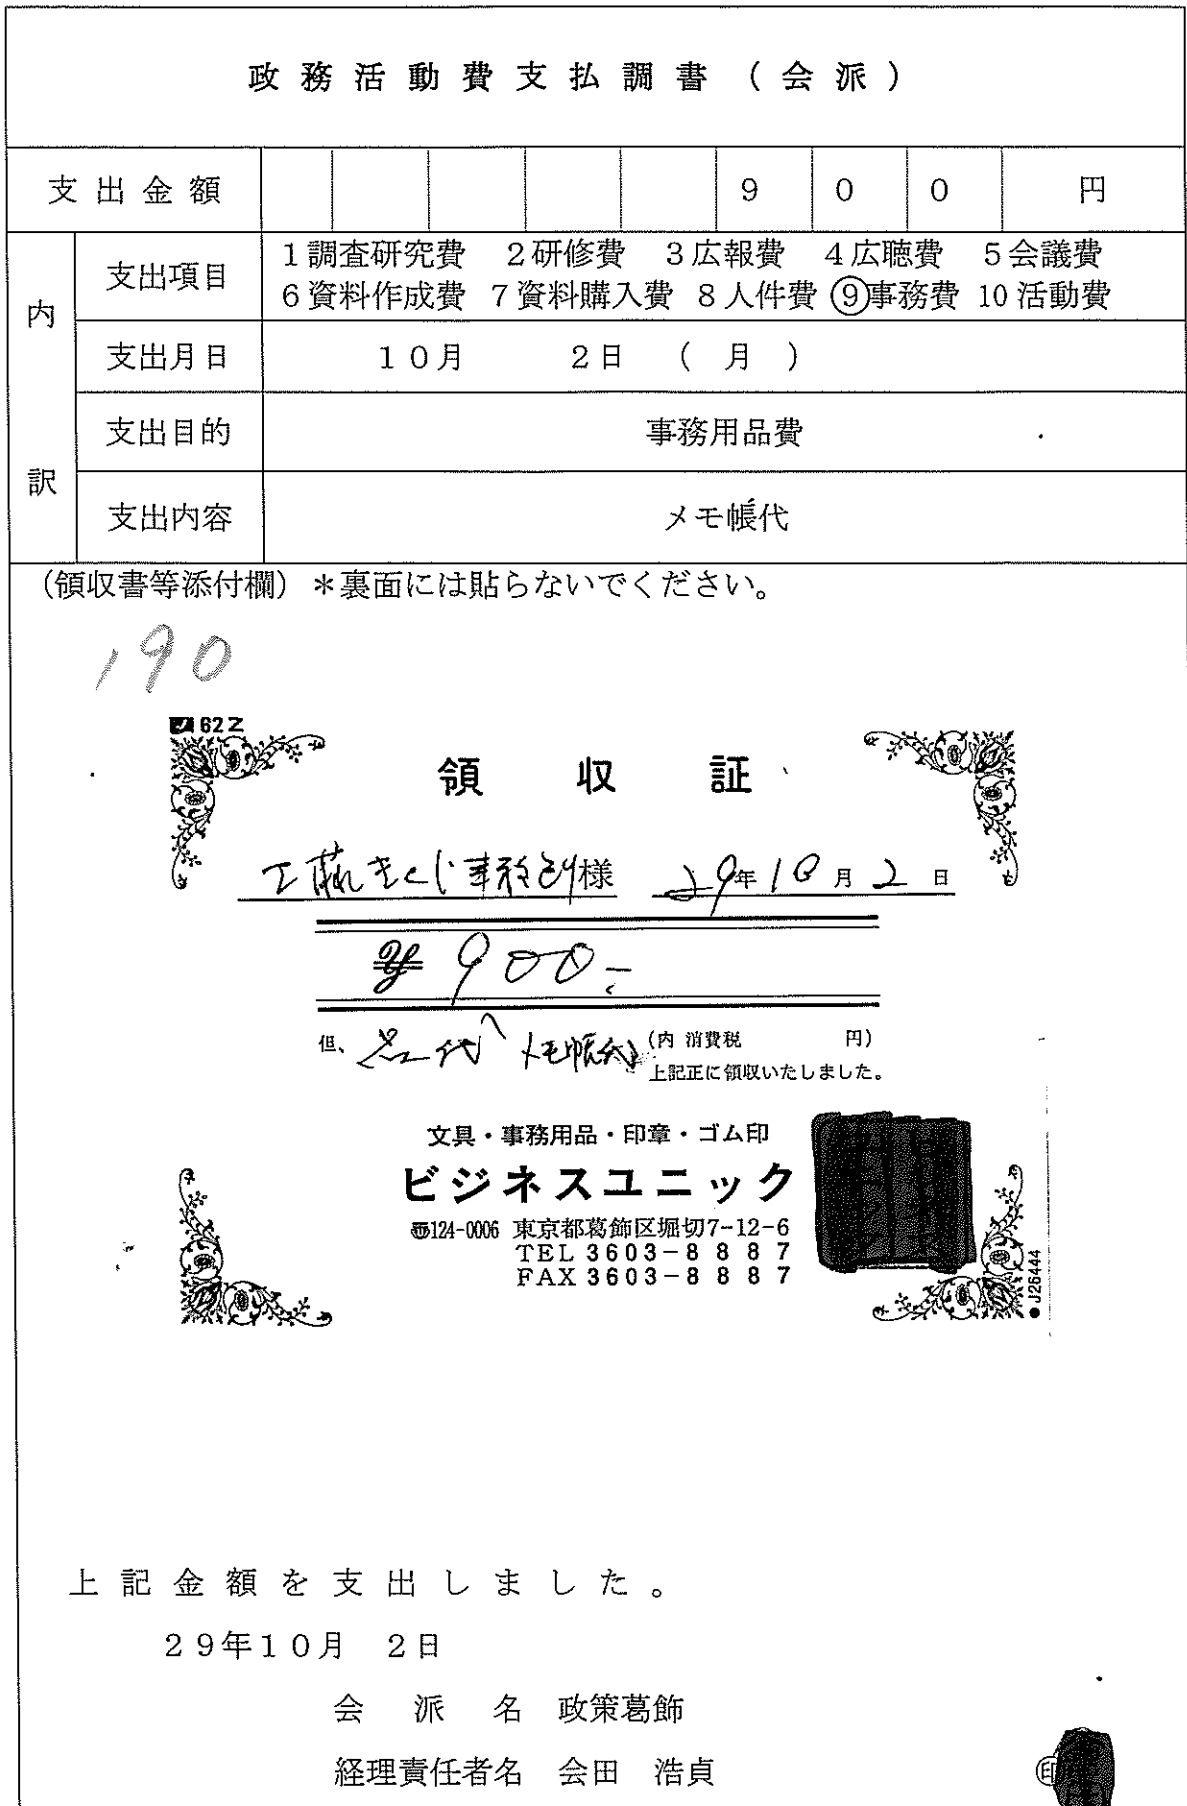 政務活動費支払調書（会派）
支出金額 900円
内訳
支出項目 1調査研究費 2研修費 3広報費 4広聴費 5会議費
6資料作成費 7資料購入費 8人件費 ⑨事務費 10活動費
支出月日 10月 2日 （月）
支出目的 事務用品費
支出内容 メモ帳代
（領収書等添付欄）＊裏面には貼らないでください。
190
62Z
領収証
工藤きくじ事務所様 29年10月2日
¥900-
但、品代 メモ帳代 （内 消費税 円）
上記正に領収いたしました。
文具・事務用品・印章・ゴム印
ビジネスユニック
〠124-0006 東京都葛飾区堀切7-12-6
TEL 3603-8887
FAX 3603-8887
J26444
上記金額を支出しました。
29年10月 2日
会派名 政策葛飾
経理責任者名 会田 浩貞 ㊞